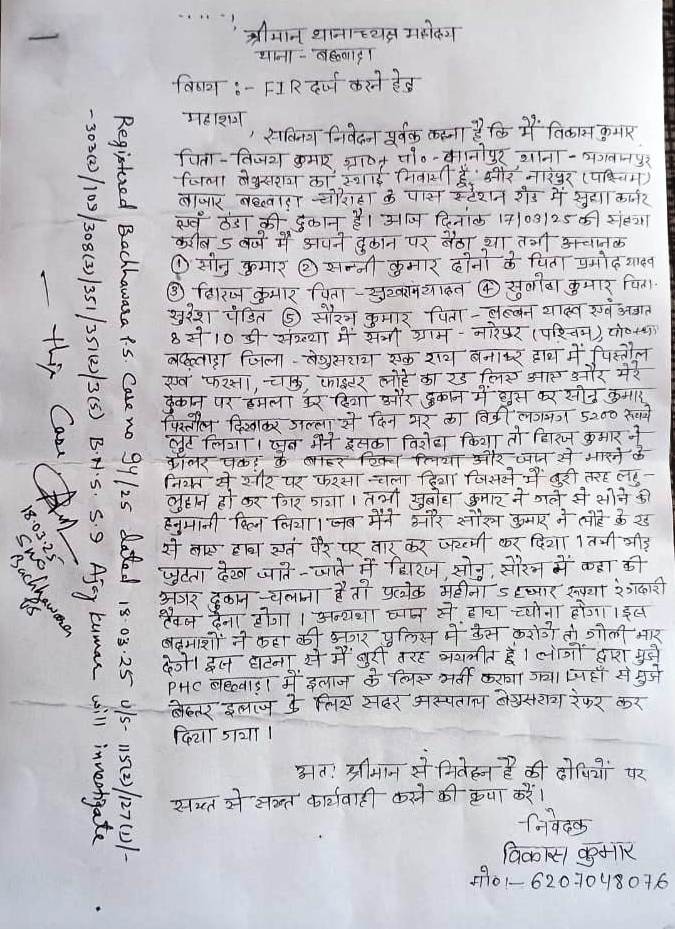 1
श्रीमान् थानाध्यक्ष महोदय
थाना - बछवाड़ा
विषय :- FIR दर्ज करने हेतु
महाशय,
सविनय निवेदन पूर्वक कहना है कि मैं विकास कुमार
पिता - विजय कुमार ग्रा०+ पो० - कानोपुर थाना - भगवानपुर
जिला बेगुसराय का स्थाई निवासी हूँ और नारेपुर (पश्चिम)
बाजार बछवाड़ा चौराहा के पास स्टेशन रोड में सुधा कार्नर
एवं ठंडा की दुकान है। आज दिनांक 17/03/25 की संध्या
करीब 5 बजे मैं अपने दुकान पर बैठा था तभी अचानक
① सोनु कुमार ② सन्नी कुमार दोनो के पिता प्रमोद यादव
③ धिरज कुमार पिता - यादव ④ सुबोध कुमार पिता-
सुरेश पंडित ⑤ सौरभ कुमार पिता - लल्बन यादव एवं अज्ञात
8 से 10 की संख्या में सभी ग्राम - नारेपुर (पश्चिम), पो०+था०
बछवाड़ा जिला - बेगुसराय एक राय बनाकर हाथ में पिस्तौल
एवं फरसा, चाकु, फाइटर लोहे का रड लिए आए और मेरे
दुकान पर हमला कर दिया और दुकान में घुस कर सोनु कुमार
पिस्तौल दिखाकर गल्ला से दिन भर का बिक्री लगभग 5200 रूपये
लुट लिया। जब मैंने इसका विरोध किया तो धिरज कुमार ने
कॉलर पकड़ के बाहर लिया और जान से मारने के
नियत से सीर पर फरसा चला दिया जिससे मैं बुरी तरह लहु-
लुहान हो कर गिर गया। तभी सुबोध कुमार ने गले से सोने की
हनुमानी छिन लिया। जब मैंने और सौरभ कुमार ने लोहे के रड
से बाए हाथ एवं पैर पर वार कर जख्मी कर दिया। तभी भीड़
जुटता देख जाते-जाते में धिरज, सोनु, सौरभ में कहा की
अगर दुकान चलाना है तो प्रत्येक महीना 5 हजार रूपया रंगदारी
टैक्स देना होगा। अन्यथा जान से हाथ धोना होगा। इस
बदमाशों ने कहा की अगर पुलिस में केस करोगे तो गोली मार
देंगे। इस घटना से मैं बुरी तरह भयभीत हूँ। लोगों द्वारा मुझे
PHC बछवाड़ा में इलाज के लिए भर्ती कराया गया। जहाँ से मुझे
बेहतर इलाज के लिए सदर अस्पताल बेगुसराय रेफर कर
दिया गया।
अतः श्रीमान से निवेदन है की दोषियों पर
सख्त से सख्त कार्यवाही करने की कृपा करें।
निवेदक
विकास कुमार
मो०:- 6207048076
Registered Bachhawara P.S. Case no 94/25 dated 18.03.25 u/s- 115(2)/127(1)/-
-303(2)/109/308(3)/351/351(2)/3(5) B.N.S. S.I Ajay kumar will investigate
this Case
18.03.25
SHO
Bachhawara
PS